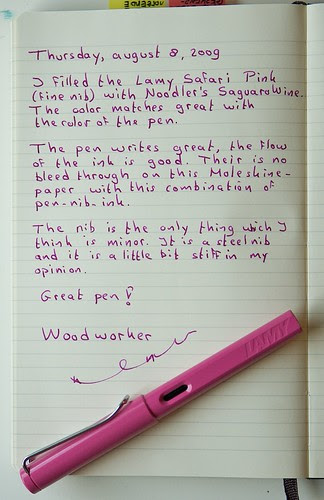 Thursday, august 8, 2009
I filled the Lamy Safari Pink
(fine nib) with Noodler's Saguaro Wine.
The color matches great with
the color of the pen.
The pen writes great, the flow
of the ink is good. Their is no
bleed through on this Moleskine-
paper with this combination of
pen-nib-ink.
The nib is the only thing wich I
think is minor. It is a steel nib
and it is a little bit stiff in my
opinion.
Great pen!
Woodworker
LAMY